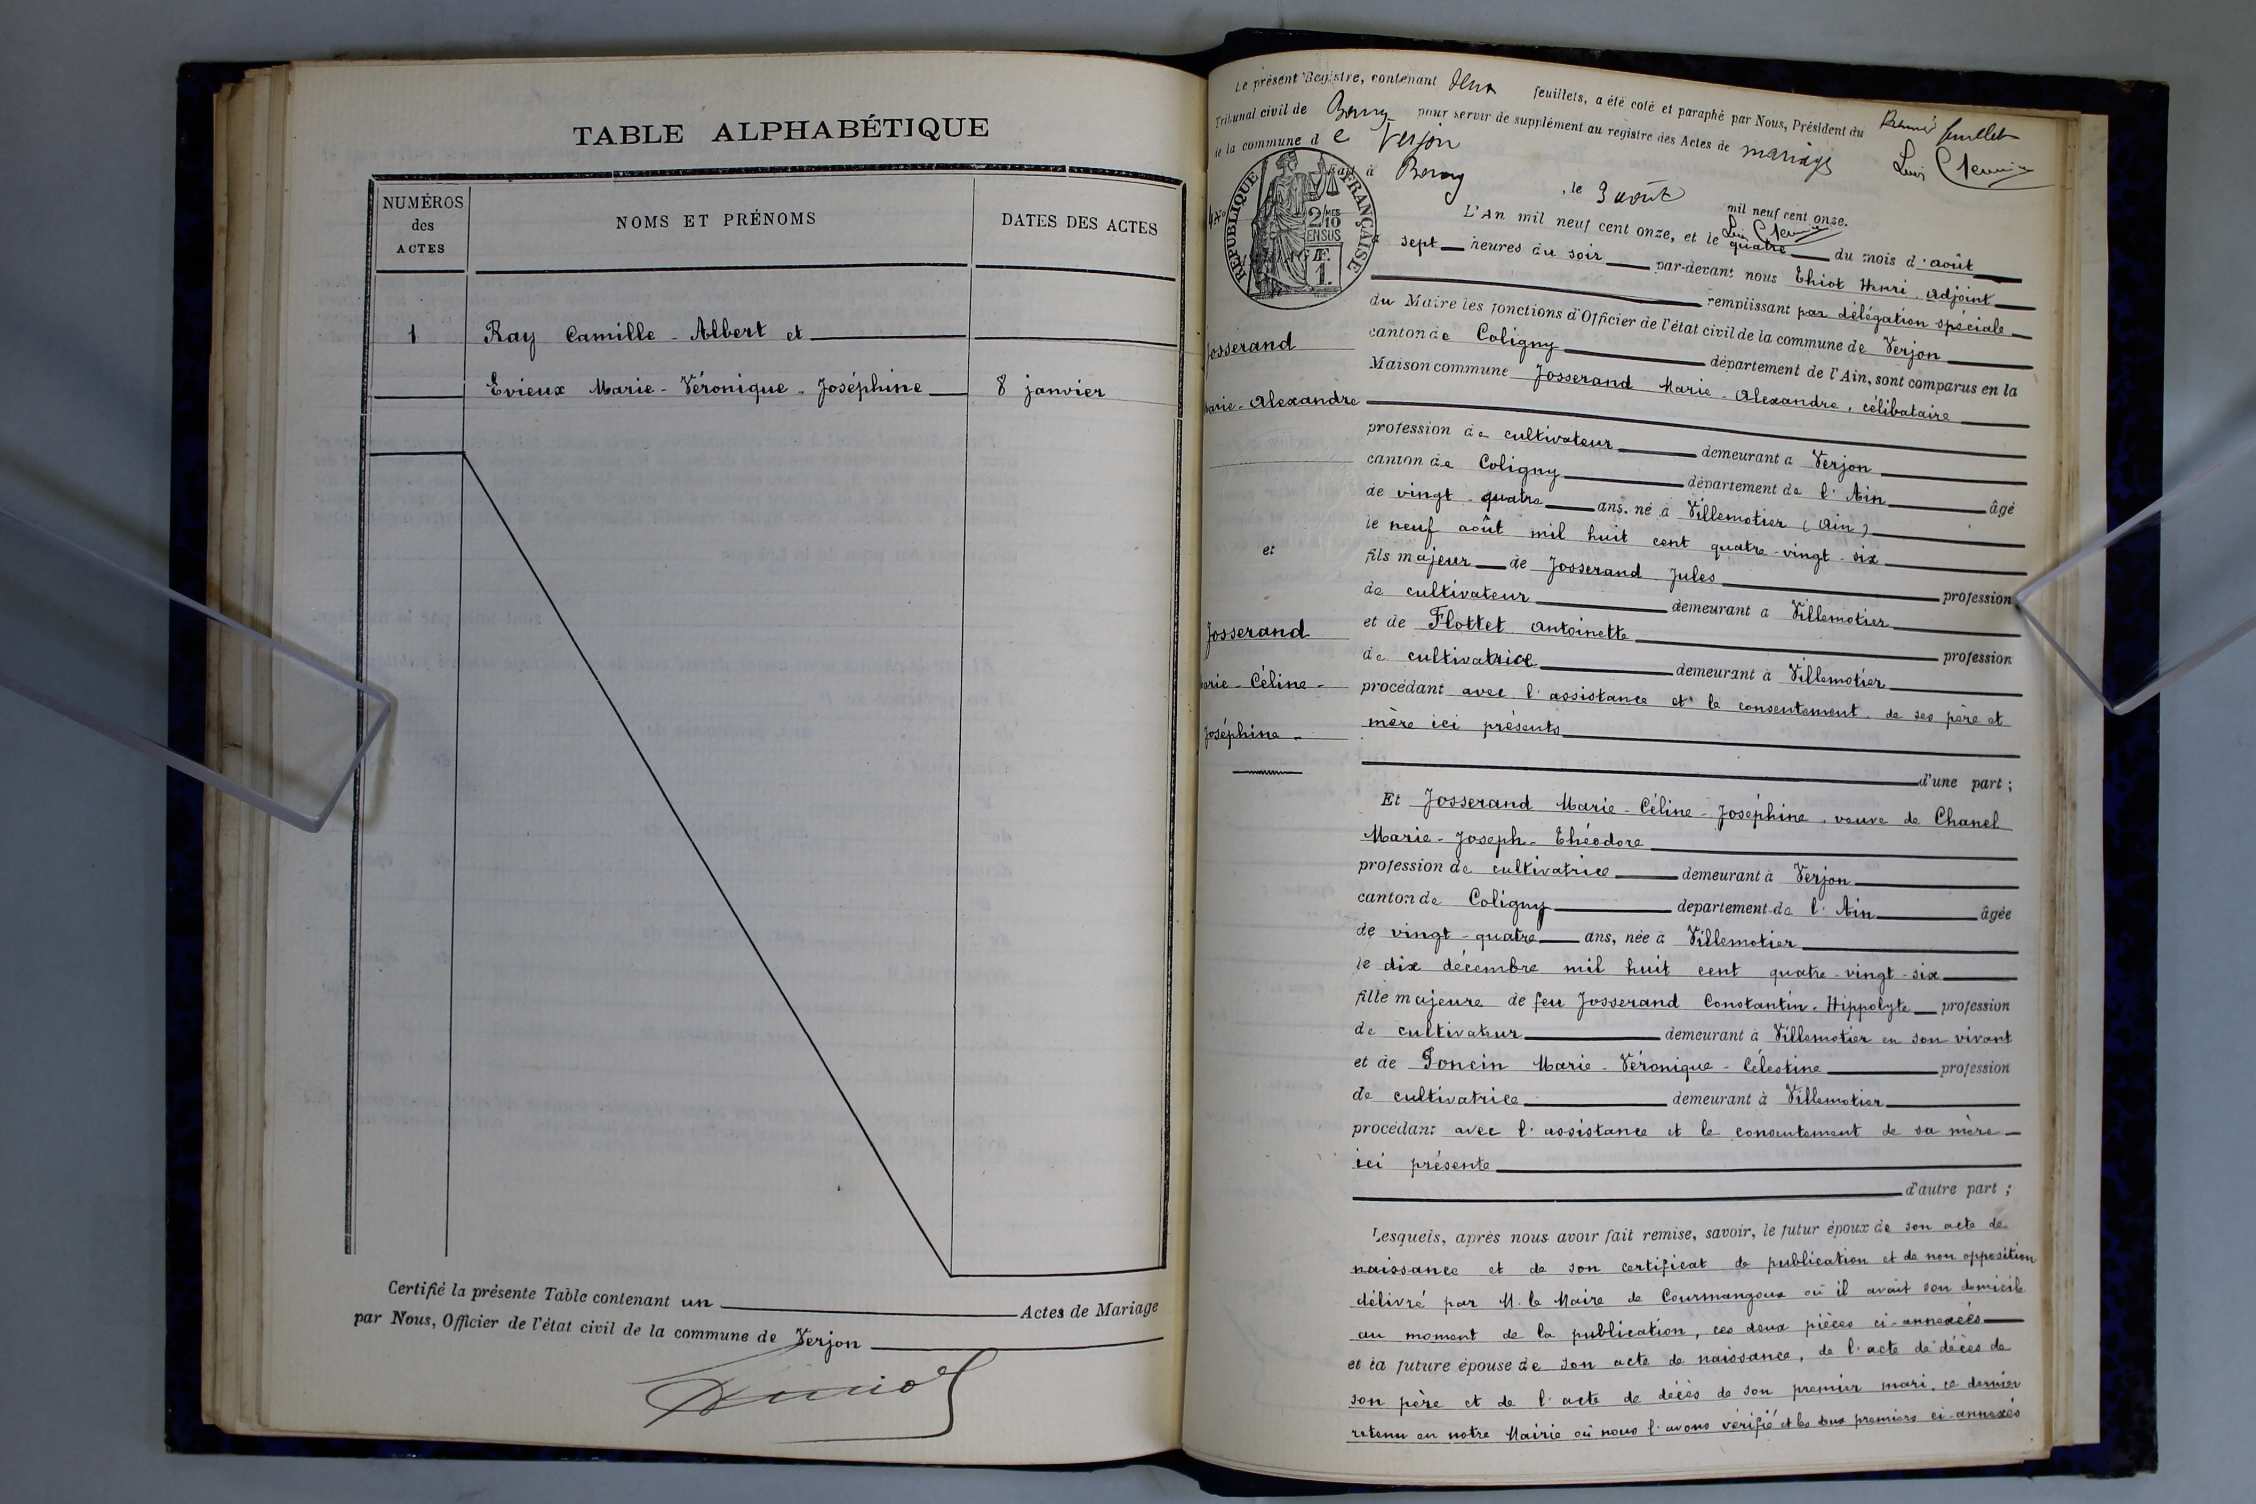 TABLE ALPHABÉTIQUE
NUMÉROS des ACTES
NOMS ET PRÉNOMS
DATES DES ACTES
1 Ray Camille - Albert et
Evieux Marie - Véronique - Joséphine 8 janvier
Certifié la présente Table contenant un Actes de Mariage
par Nous, Officier de l'état civil de la commune de Verjon
Le présent Registre, contenant deux feuillets, a été coté et paraphé par Nous, Président du
Tribunal civil de Bourg pour servir de supplément au registre des Actes de mariage
de la commune de Verjon
Premier feuillet
Fait à Bourg, le 3 août mil neuf cent onze.
RÉPUBLIQUE FRANÇAISE
2/10 MES
EN SUS
Æ
1
L'An mil neuf cent onze, et le quatre du mois d'août
à sept heures du soir par-devant nous Thiot Henri, adjoint
remplissant par délégation spéciale
du Maire les fonctions d'Officier de l'état civil de la commune de Verjon
canton de Coligny département de l'Ain, sont comparus en la
Maison commune Josserand Marie - Alexandre, célibataire
profession de cultivateur demeurant à Verjon
canton de Coligny département de l'Ain âgé
de vingt-quatre ans, né à Villemotier (Ain)
le neuf août mil huit cent quatre-vingt-six
fils majeur de Josserand Jules profession
de cultivateur demeurant à Villemotier
et de Flottet Antoinette profession
de cultivatrice demeurant à Villemotier
procédant avec l'assistance et le consentement de ses père et
mère ici présents
d'une part ;
Josserand
Marie - Alexandre
et
Josserand
Marie - Céline -
Joséphine -
Et Josserand Marie - Céline - Joséphine, veuve de Chanel
Marie - Joseph - Théodore
profession de cultivatrice demeurant à Verjon
canton de Coligny département de l'Ain âgée
de vingt-quatre ans, née à Villemotier
le dix décembre mil huit cent quatre-vingt-six
fille majeure de feu Josserand Constantin - Hippolyte profession
de cultivateur demeurant à Villemotier en son vivant
et de Poncin Marie - Véronique - Célestine profession
de cultivatrice demeurant à Villemotier
procédant avec l'assistance et le consentement de sa mère
ici présente
d'autre part ;
Lesquels, après nous avoir fait remise, savoir, le futur époux de son acte de
naissance et de son certificat de publication et de non opposition
délivré par M. le Maire de Courmangoux où il avait son domicile
au moment de la publication, ces deux pièces ci-annexées
et la future épouse de son acte de naissance, de l'acte de décès de
son père et de l'acte de décès de son premier mari, ce dernier
retenu en notre Mairie où nous l'avons vérifié et les deux premiers ci-annexés